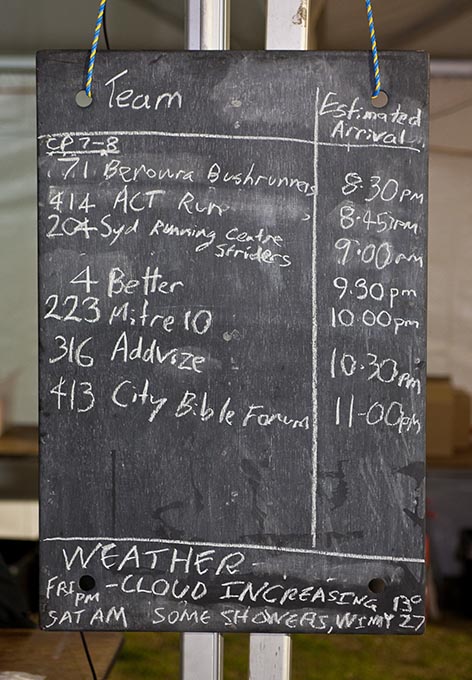 Team Estimated Arrival
CP7-8
71 Berowra Bushrunners 8:30pm
414 ACT Run 8:45pm
204 Syd Running Centre Striders 9:00pm
4 Better 9.30pm
223 Mitre 10 10:00pm
316 Addvize 10:30pm
413 City Bible Forum 11-00pm
WEATHER-
FRI PM -CLOUD INCREASING 13°
SAT AM SOME SHOWERS, 27